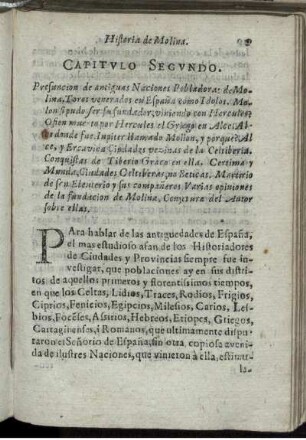 Historia de Molina.
CAPITVLO SEGVNDO.
Presuncion de antiguas Naciones Pobladoras de Mo-
lina. Toros venerados en España como Idolos. Mo-
lon si pudo ser su fundador, viniendo con Hercules
muerto por Hercules el Griego en
donde fue. Iupiter llamado Mollon, y porque? Al
ce, y Ercavica Ciudades vezinas de la Celtiberia.
Conquistas de Tiberio Graco en ella. Certima y
Munda, Ciudades Celtiberas, no Beticas. Martirio
de San Eleuterio y sus compañeros Varias opiniones
de la fundacion de Molina, Conjetura del Autor
sobre ellas.
PAra hablar de las antiguedades de España,
el mas estudioso afan de los Historiadores
de Ciudades y Provincias siempre fue in-
vestigar, que poblaciones ay en sus distri-
tos de aquellos primeros y florentissimos tiempos,
en que los Celtas, Lidios, Traces, Rodios, Frigios,
Ciprios, Fenicios, Egipcios, Milesios, Carios, Les-
bios, Focēses, Assirios, Hebreos, Etiopes, Griegos,
Cartaginenses, i Romanos, que ultimamente dispu-
taron el Señorio de España, sin otra copiosa aveni-
da de ilustres Naciones, que vinieron à ella, estimu-
la-